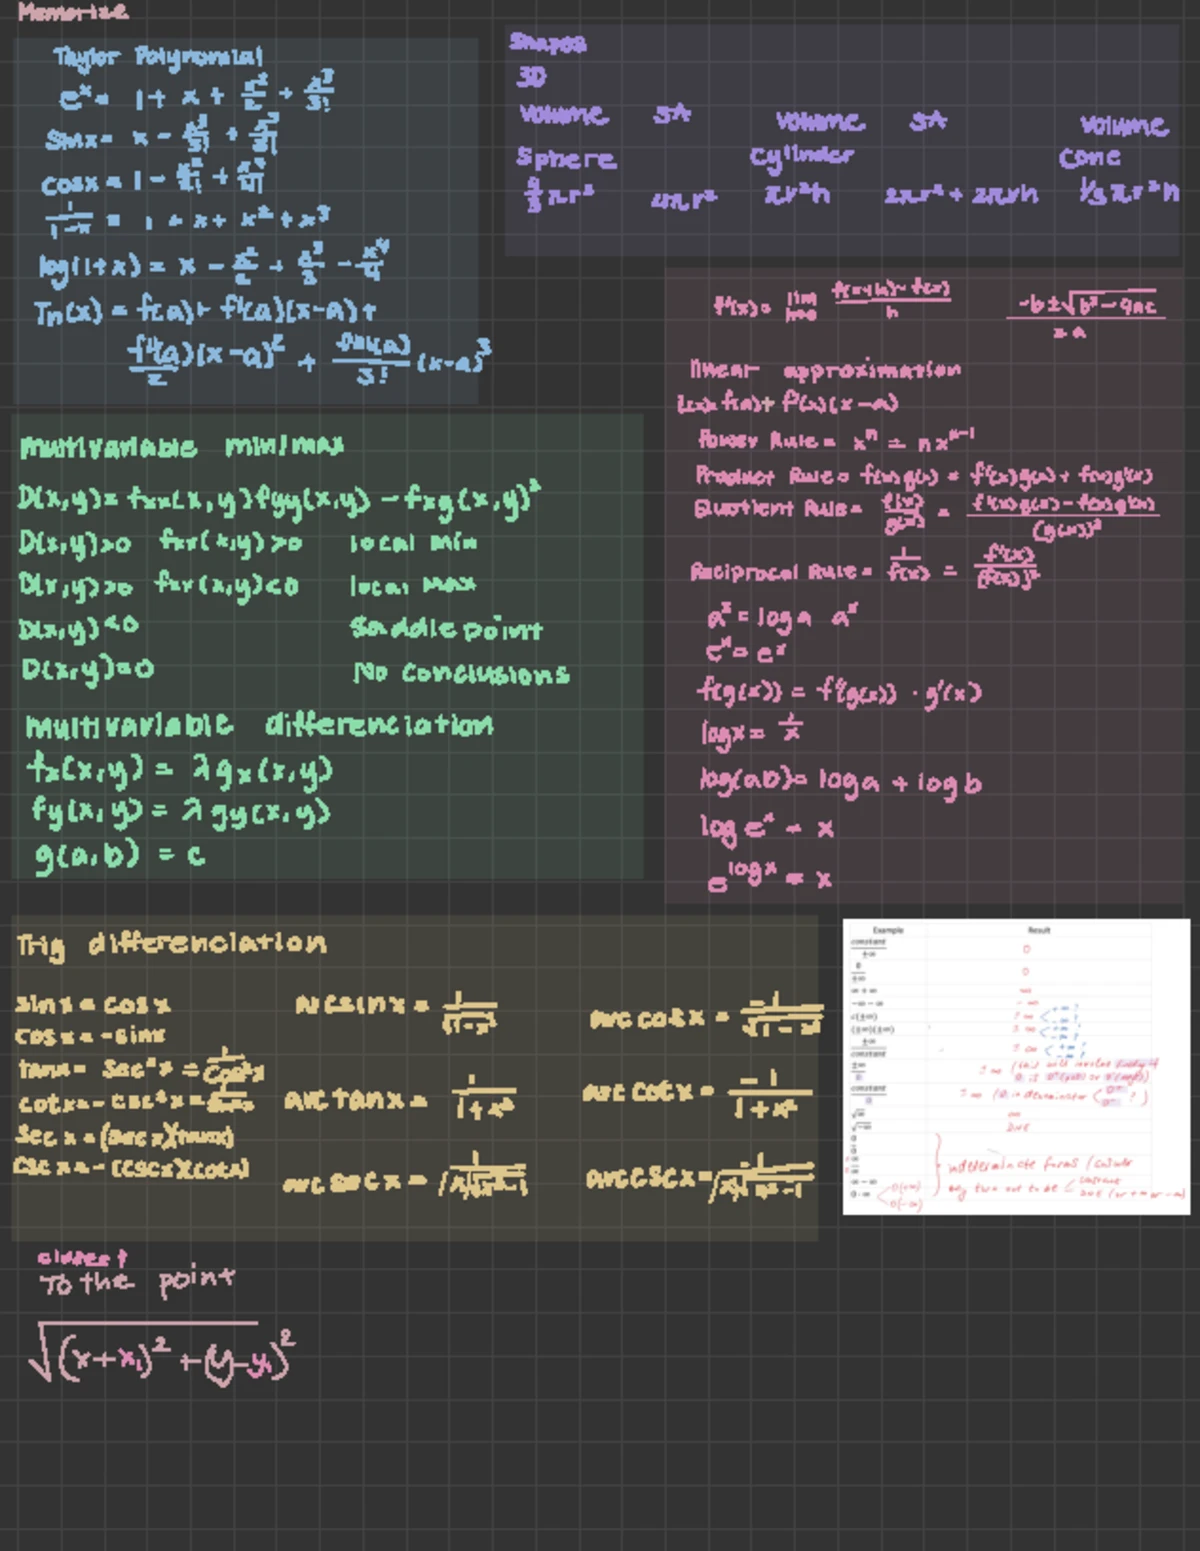 Memorize
Taylor Polynomial
e^x = 1 + x + x^2/2 + x^3/3!
sinx = x - x^3/3! +
cosx = 1 - x^2/2! + x^4/4!
1/(1-x) = 1 + x + x^2 + x^3
log(1+x) = x - x^2/2 + x^3/3 - x^4/4
Tn(x) = f(a) + f'(a)(x-a) +
f''(a)/2 (x-a)^2 + f'''(a)/3! (x-a)^3
Shapes
3D
Volume SA Volume SA Volume
Sphere Cylinder Cone
4πr² πr²h 2πr² + 2πrh 1/3πr²h
f'(x) = lim h→0 (f(x+h) - f(x))/h
-b ± √(b² - 4ac) / 2a
linear approximation
f(a) + f'(x)(x-a)
Power Rule = x^n = nx^(n-1)
Product Rule = f(x)g(x) = f'(x)g(x) + f(x)g'(x)
Quotient Rule = f(x)/g(x) = (f'(x)g(x) - f(x)g'(x))/(g(x))²
Reciprocal Rule = 1/f(x) = f'(x)/(f(x))²
a^x = log a a^x
e^x = e^x
f(g(x)) = f'(g(x)) · g'(x)
log x = 1/x
log(ab) = log a + log b
log e^x = x
e^(log x) = x
Multivariable min/max
D(x,y) = fxx(x,y) fyy(x,y) - fxy(x,y)²
D(x,y)>0 fxx(x,y)>0 local min
D(x,y)>0 fxx(x,y)<0 local max
D(x,y)<0 Saddle point
D(x,y)=0 No conclusions
Multivariable differenciation
fx(x,y) = λgx(x,y)
fy(x,y) = λgy(x,y)
g(a,b) = c
Trig differenciation
sin x = cos x
cos x = -sinx
tanx = sec²x = 1/cos²x
cotx = -csc²x =
sec x = (sec x)(tanx)
csc x = -(cscx)(cotx)
Arcsin x = 1/√(1-x²)
arc tanx = 1/(1+x²)
arc sec x =
arc cosx = -1/√(1-x²)
arc cot x = -1/(1+x²)
arc csc x =
Example Result
constant/±∞ 0
0/±∞ 0
∞ + ∞
-∞ - ∞ -∞
(±∞)(±∞)
±∞/constant
constant/0
√∞ ∞
√-∞ DNE
∞ - ∞
0·∞
indeterminate forms
closest
To the point
√((x+x₁)² + (y-y₁)²